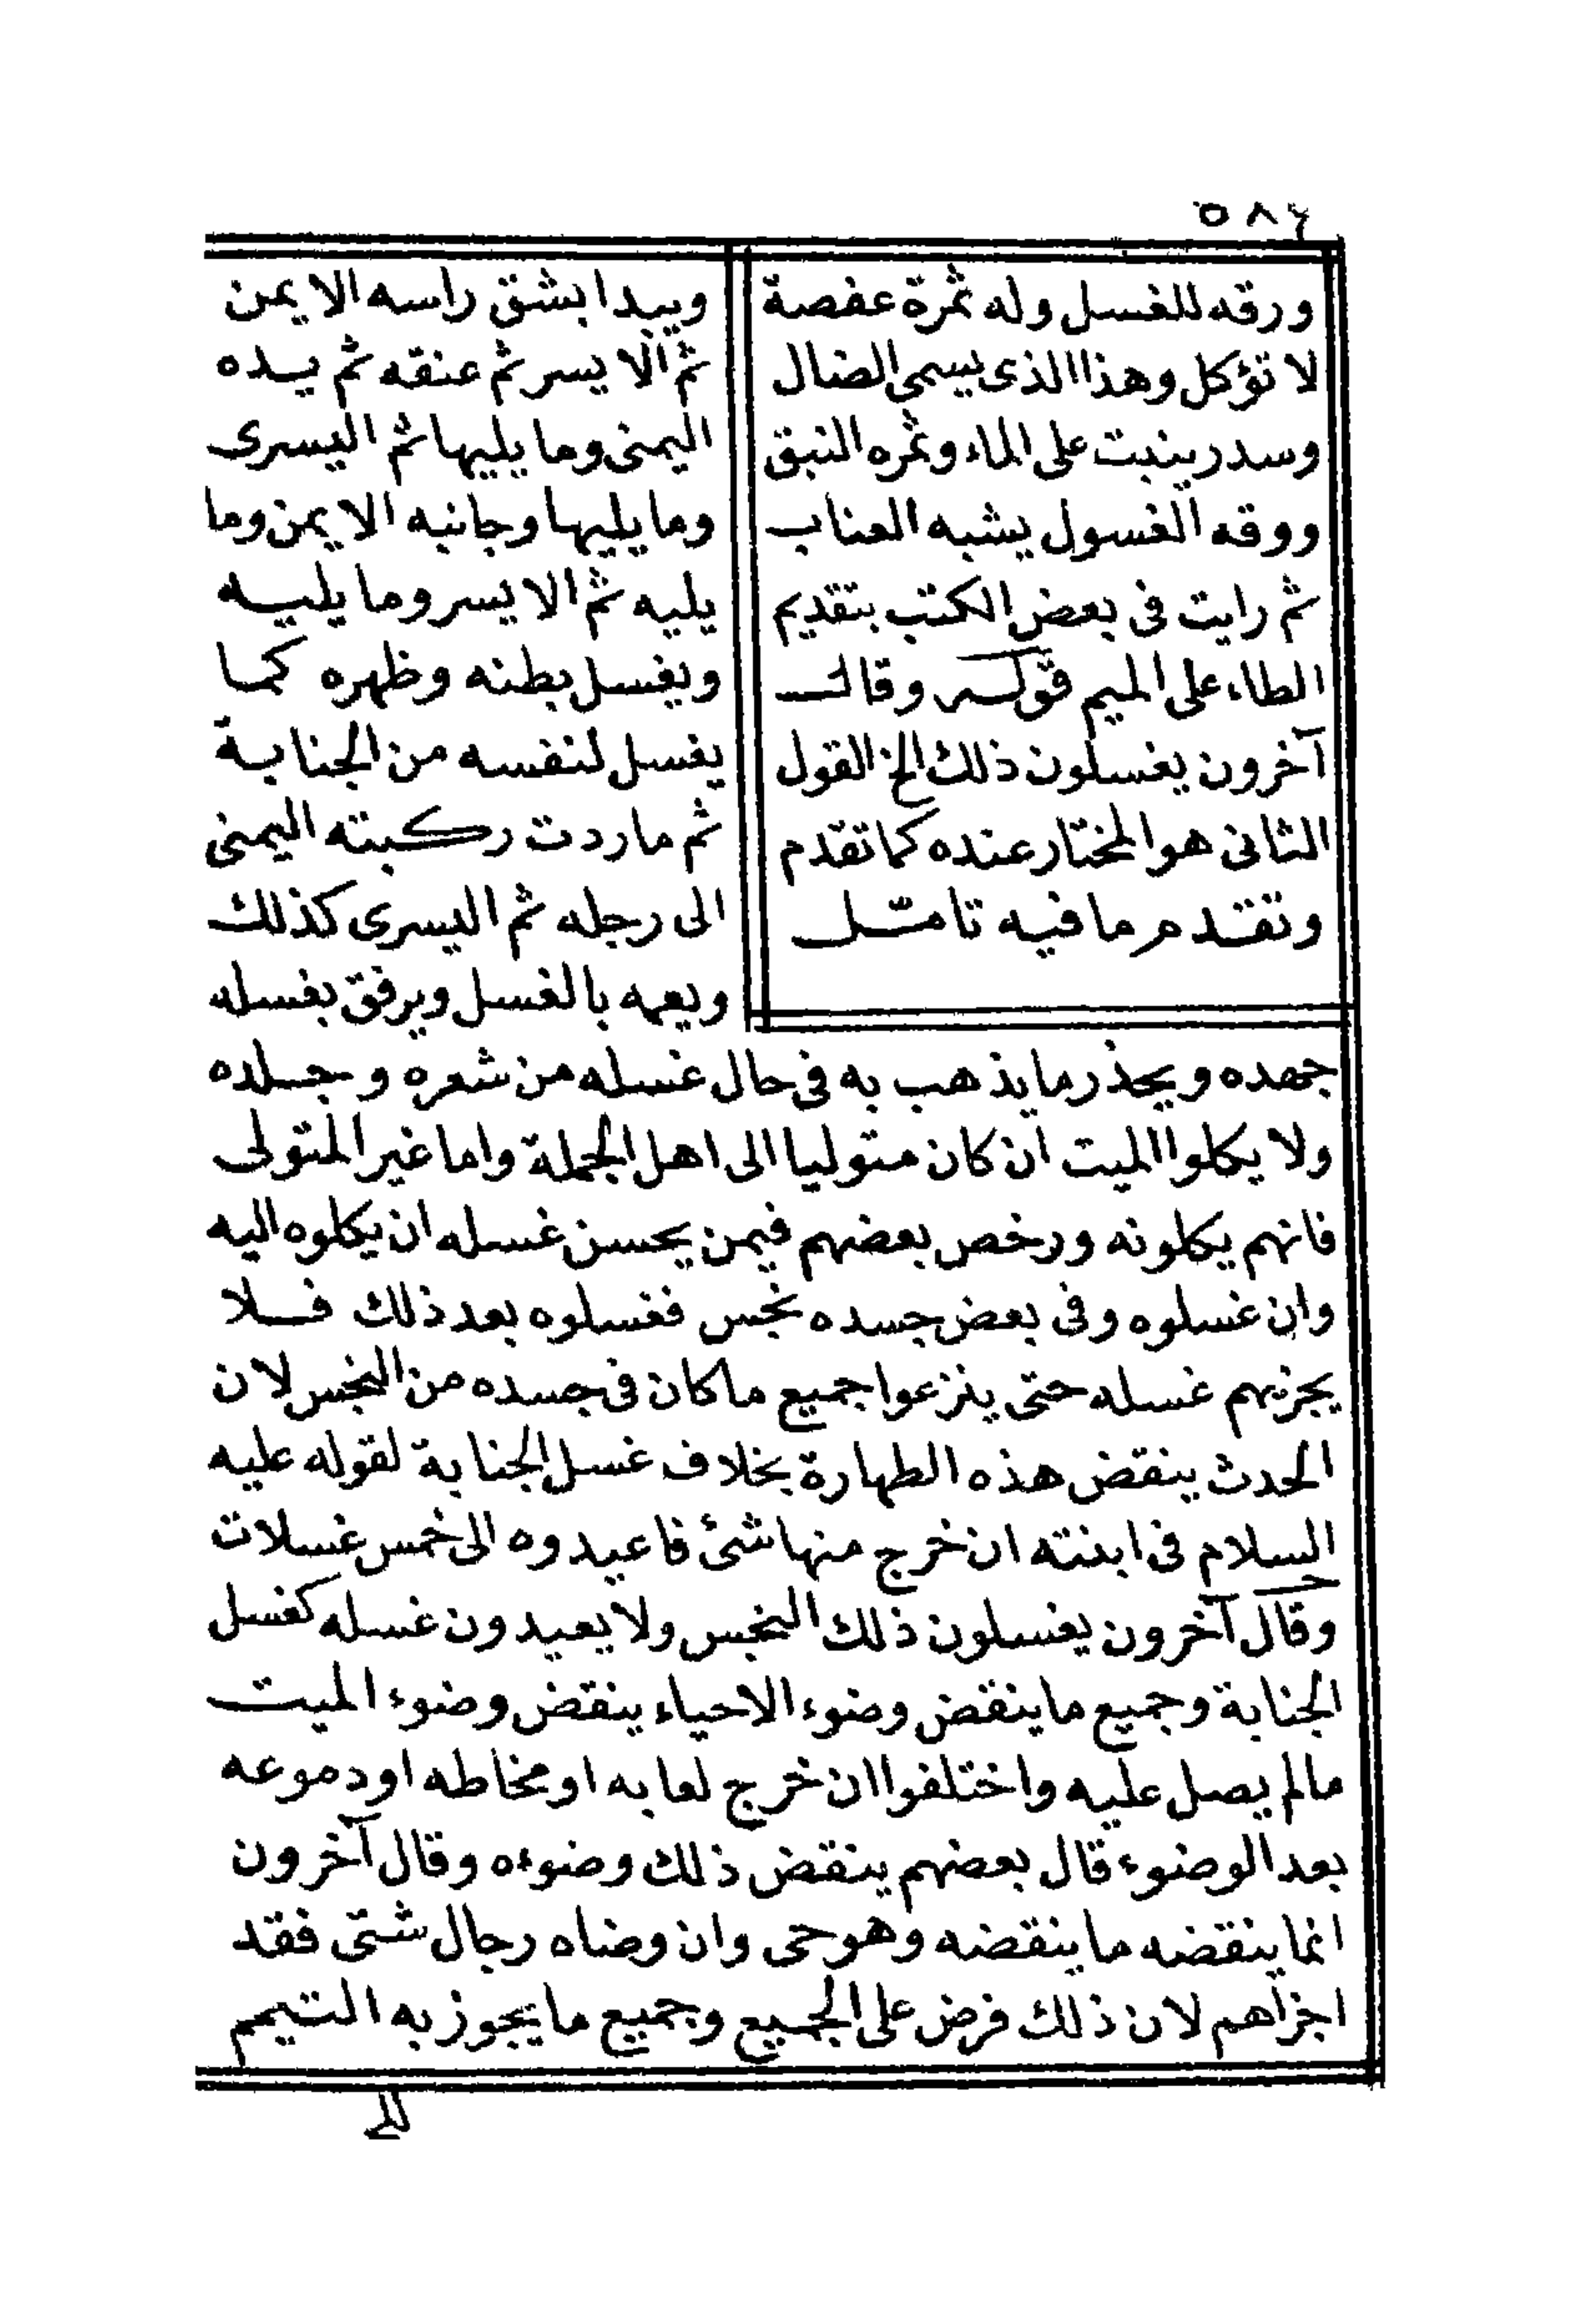 ٥٨٤
ورقه للغسل وله ثمرة عفصة
لا تؤكل وهذا الذى يسمى الضال
وسدر ينبت على الماء وثمره النبق
ووقه الغسول يشبه العناب
ثم رايت فى بعض الكتب بتقديم
الطاء على الميم قوله وقال
آخرون يغسلون ذلك الخ القول
الثانى هو المختار عنده كما تقدم
وتقدم ما فيه تامل
ويبدا بشق راسه الايمن
ثم الايسر ثم عنقه ثم يده
اليمنى وما يليها ثم اليسرى
وما يليها وجانبه الايمن وما
يليه ثم الايسر وما يليه
ويغسل بطنه وظهره كما
يغسل لنفسه من الجنابة
ثم ما ردت ركبته اليمنى
الى رجله ثم اليسرى كذلك
ويعمه بالغسل ويرفق بغسله
جمهده ويحذر ما يذهب به فى حال غسله من شعره وجلده
ولا يكلوا الميت ان كان متوليا الى اهل الجملة واما غير المتولى
فانهم يكلونه ورخص بعضهم فيمن يحسن غسله ان يكلوه اليه
وان غسلوه وفى بعض جسده نجس فغسلوه بعد ذلك فلا
يجزيهم غسله حتى ينزعوا جميع ما كان فى جسده من النجس لان
الحدث ينقض هذه الطهارة بخلاف غسل الجنابة لقوله عليه
السلام فى ابنته ان خرج منها شئ فاعيدوه الى خمس غسلات
وقال آخرون يغسلون ذلك النجس ولا يعيدون غسله كغسل
الجنابة وجميع ما ينقض وضوء الاحياء ينقض وضوء الميت
مالم يصل عليه واختلفوا ان خرج لعابه او مخاطه او دموعه
بعد الوضوء قال بعضهم ينقض ذلك وضوءه وقال آخرون
انما ينقضه ما ينقضه وهو حى وان وضاه رجال شتى فقد
اجزاهم لان ذلك فرض على الجميع وجميع ما يجوز به التيمم